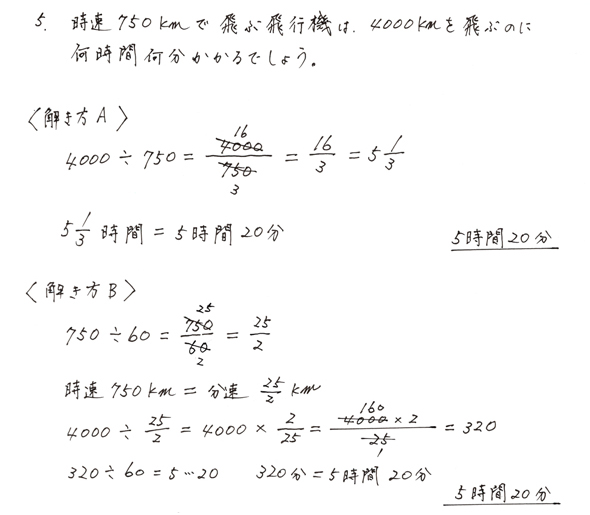 5. 時速750kmで飛ぶ飛行機は、4000kmを飛ぶのに
何時間何分かかるでしょう。
〈解き方A〉
16
4000÷750=4000/750=16/3=5 1/3
3
5 1/3 時間=5時間20分
5時間20分
〈解き方B〉
25
750÷60=750/60=25/2
2
時速750km=分速 25/2 km
160
4000÷25/2=4000×2/25=4000×2/25=320
1
320÷60=5…20 320分=5時間20分
5時間20分